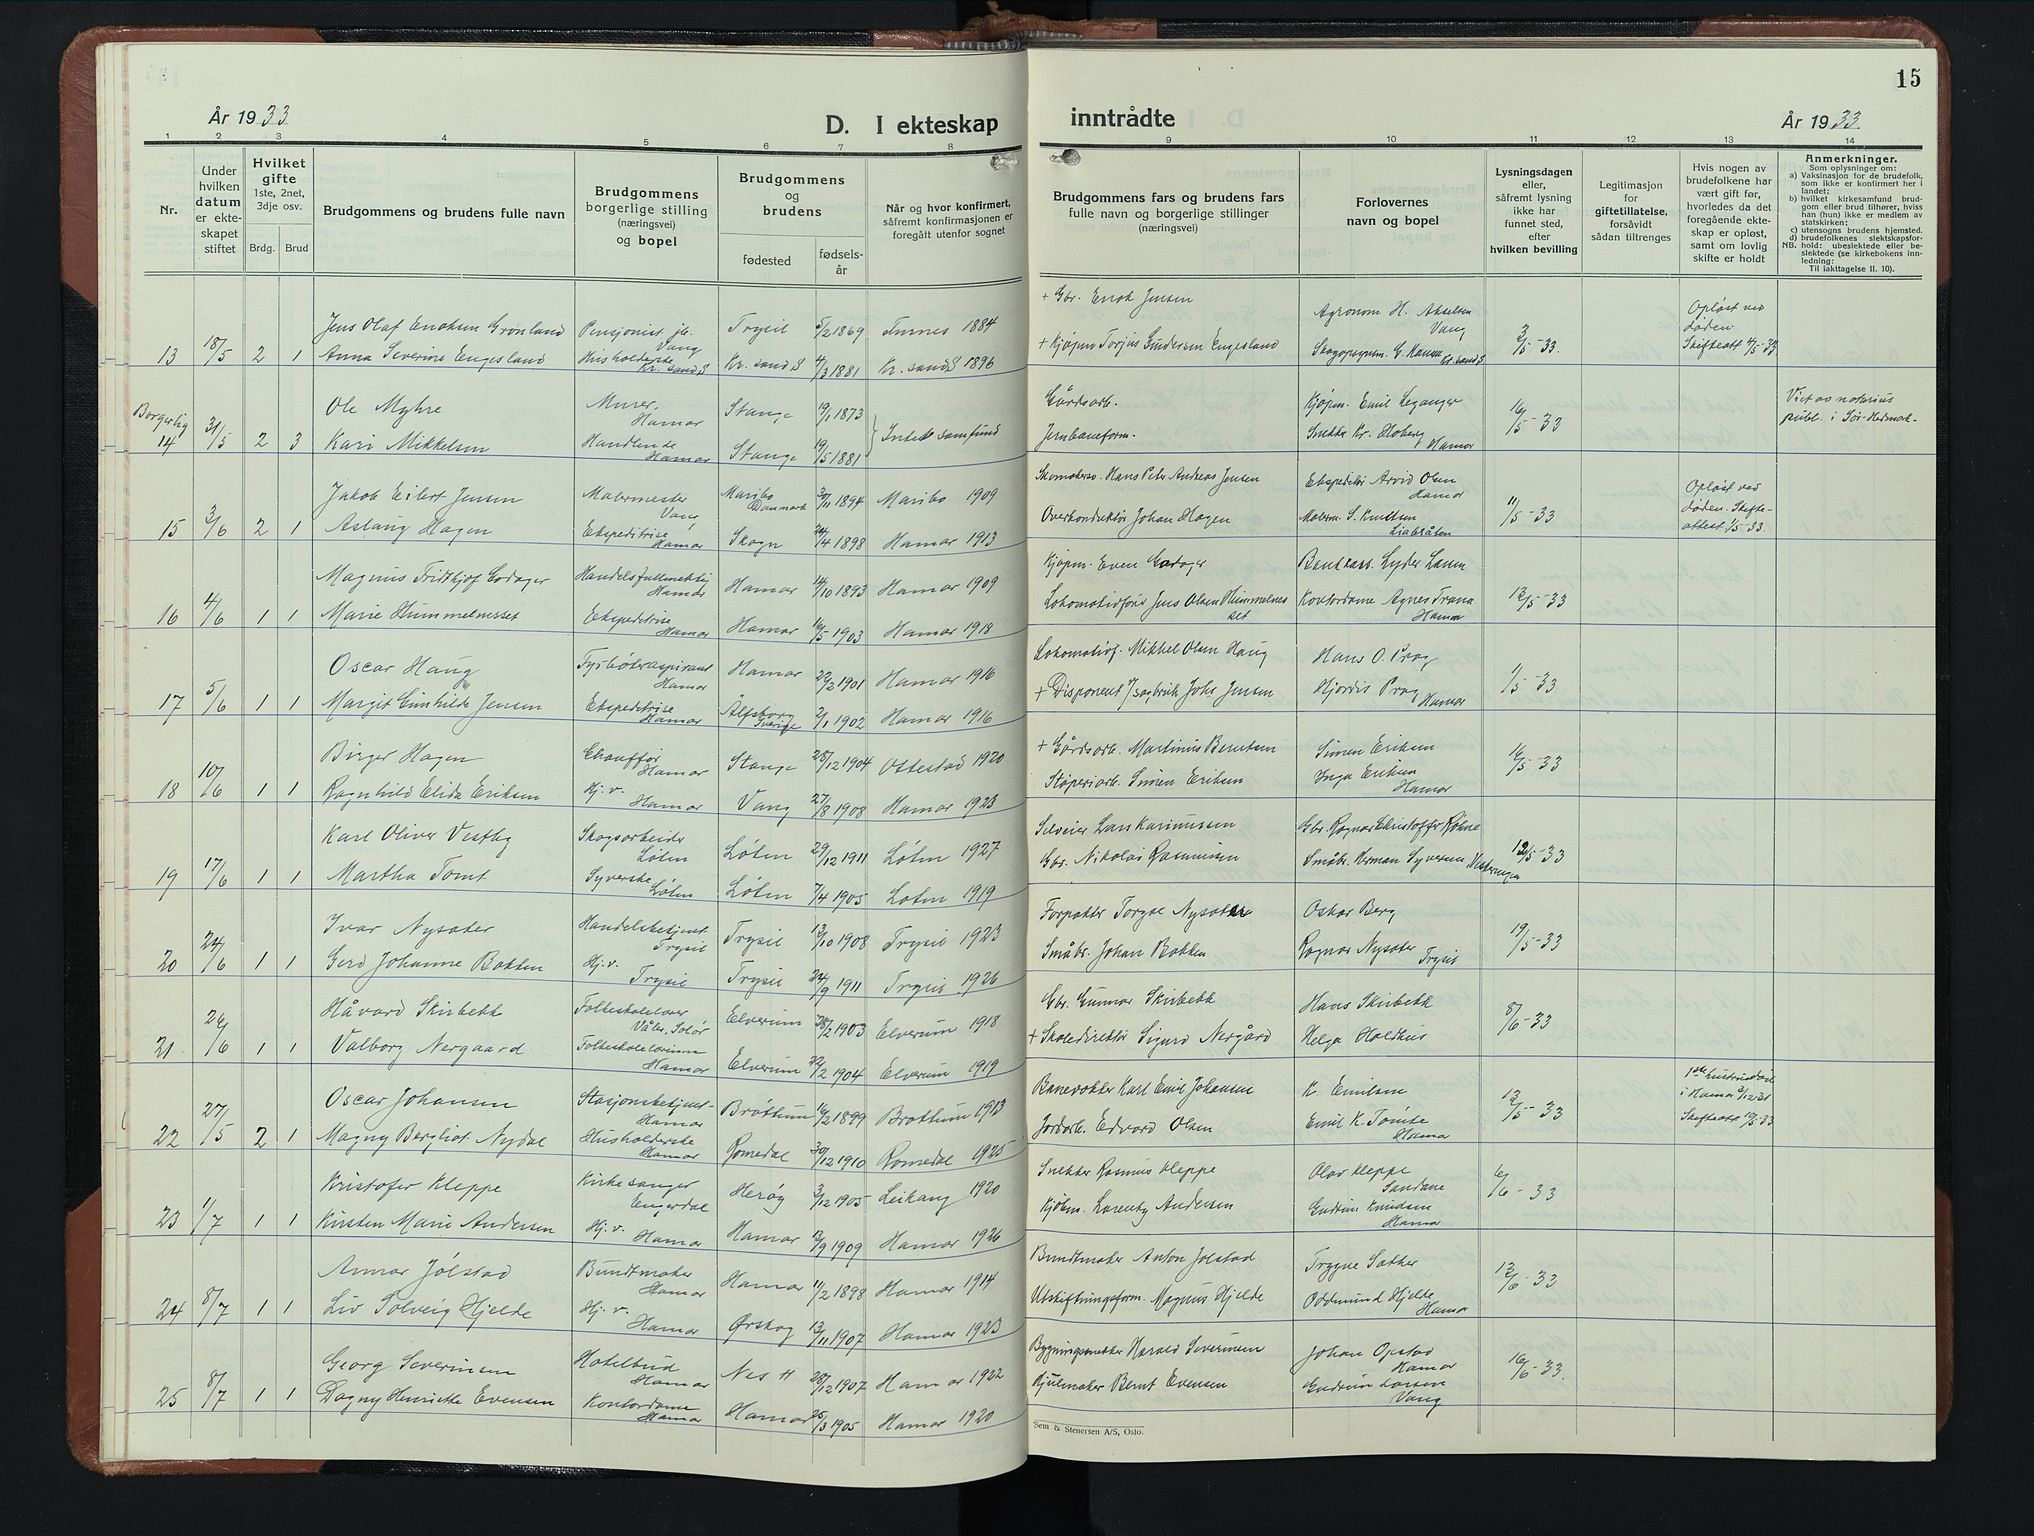 15
År 1933
D. I ekteskap
inntrådte
År 1933
1 2 3 4 5 6 7 8 9 10 11 12 13 14
Nr.
Under hvilken datum er ekteskapet stiftet
Hvilket gifte
1ste, 2net, 3dje osv.
Brdg. Brud
Brudgommens og brudens fulle navn
Brudgommens borgerlige stilling (næringsvei) og bopel
Brudgommens og brudens
fødested fødselsår
Når og hvor konfirmert, såfremt konfirmasjonen er foregått utenfor sognet
Brudgommens fars og brudens fars fulle navn og borgerlige stillinger (næringsvei)
Forlovernes navn og bopel
Lysningsdagen eller, såfremt lysning ikke har funnet sted, efter hvilken bevilling
Legitimasjon for giftetillatelse, forsåvidt sådan tiltrenges
Hvis nogen av brudefolkene har vært gift før, hvorledes da det foregående ekteskap er opløst, samt om lovlig skifte er holdt
Anmerkninger.
Som oplysninger om:
a) Vaksinasjon for de brudefolk, som ikke er konfirmert her i landet;
b) hvilket kirkesamfund brudgom eller brud tilhører, hvis han (hun) ikke er medlem av statskirken;
c) utensogns brudens hjemsted.
d) brudefolkenes slektskapsforhold: ubeslektede eller beslektede (se kirkebokens innledning:
NB. Til iakttagelse II. 10).
Jens Olaf Enoksen Grønland Pensjonist Vang Trysil 5/2 1869 Furnes 1884 + Gbr. Enok Jensen Agronom H. Akselsen Vang Opløst ved døden.
13 18/5 2 1 Anna Severine Engesland Kr. sand S Kr. sand S 4/3 1881 Kr. sand S 1896 + Kjøpm. Torjus Gundersen Engesland Kr. sand S 3/5-33. Skifteatt 4/5-33
Borgerlig Ole Myhre Murer, Hamar Stange 19/1 1873 Gårdsarb. Kjøpm. Emil Leganger Viet av notarius
14 31/5 2 3 Kari Mikkelsen Handlende Hamar Stange 19/5 1881 Intet samfund Jernbaneform. Snekker Kr. Hoberg Hamar 16/5-33 publ. i Sør-Hedmark.
Jakob Eilert Jensen Malermester Vang Maribo Danmark 30/11 1894 Maribo 1909 Skomakersv. Hans Peter Andreas Jensen Ekspeditør Arvid Olsen Hamar Opløst ved døden. Skifte-
15 3/6 2 1 Aslaug Hagen Ekspeditrise Hamar Skogn 24/4 1898 Hamar 1913 Overkonduktør Johan Hagen Malerm. S. Knutsen 11/5-33 attest 1/5-33.
Magnus Fridthjof Godager Handelsfullmektig Hamar Hamar 14/10 1893 Hamar 1909 Kjøpm. Even Godager
16 4/6 1 1 Marie Hummelnesset Ekspeditrise Hamar Hamar 16/5 1903 Hamar 1918 Lokomotivfører Jens Olsen Hummelnesset Kontordame Agnes Trana Hamar 12/5-33
Oscar Haug Fyrbøteraspirant Hamar Hamar 22/2 1901 Hamar 1916 Lokomotivf. Mikkel Olsen Haug Hans O. Prag
17 5/6 1 1 Margit Gunhilde Jensen Ekspeditrise Hamar Älfsborg Sverige 2/1 1902 Hamar 1916 + Disponent Johs. Jensen Hjordis Prag Hamar 1/5-33
Birger Hagen Chauffør Hamar Stange 28/12 1904 Ottestad 1920 + Gårdsarb. Martinus Berntsen Simen Eriksen
18 10/6 1 1 Ragnhild Elida Eriksen Hj. v. Hamar Vang 27/8 1908 Hamar 1923 Støperiarb. Simen Eriksen Inga Eriksen Hamar 16/5-33
Karl Oliver Vestby Skogsarbeider Løten Løten 29/12 1911 Løten 1927 Selveier Lars Karinussen Gbr. Ragnar Christoffer Røhne
19 17/6 1 1 Martha Tomt Syerske Løten Løten 7/4 1905 Løten 1919 Gbr. Nikolai Rasmussen Småbr. Herman Syversen 12/5-33
Ivar Nysæter Handelsbetjent Trysil Trysil 13/10 1908 Trysil 1923 Forpakter Torgal Nysæter Oskar Berg
20 24/6 1 1 Gerd Johanne Bakken Hj. v. Trysil Trysil 24/9 1911 Trysil 1926 Småbr. Johan Bakken Ragnar Nysæter Trysil 19/5-33
Håvard Skirbekk Folkeskolelærer Våler, Solør Elverum 28/2 1903 Elverum 1918 Gbr. Gunnar Skirbekk Hans Skirbekk
21 26/6 1 1 Valborg Nergaard Folkeskolelærerinne Hamar Elverum 22/2 1904 Elverum 1919 + Skoledirektør Sigurd Nergård Helga Holdhus 8/6-33
Oscar Johansen Stasjonsbetjent Hamar Brøttum 16/2 1899 Brøttum 1913 Banevokter Karl Emil Johansen K. Emilsen 1ste hustru død i Hamar
22 27/5 2 1 Magny Bergliot Nydal Husholderske Hamar Romedal 30/12 1910 Romedal 1925 Jordarb. Edvard Olsen Emil K. Tømte Hamar 12/5-33 Skifteatt 12/5-33
Kristofer Kleppe Kirkesanger Engerdal Herøy 3/12 1905 Leikang 1920 Snekker Rasmus Kleppe Olav Kleppe Sandane
23 1/7 1 1 Kirsten Marie Andersen Hj. v. Hamar Hamar 13/9 1909 Hamar 1926 Kjøbm. Lorentz Andersen Gudrun Knudsen Hamar 6/6-33
Annar Jølstad Bundtmaker Hamar Hamar 11/2 1898 Hamar 1914 Bundtmaker Anton Jølstad Trygve Sæther
24 8/7 1 1 Liv Solveig Hjelde Hj. v. Hamar Ørskog 13/11 1907 Hamar 1923 Utskiftningsform. Magnus Hjelde Oddmund Hjelde Hamar 13/6-33
Georg Severinsen Hotelbud Hamar Nes H 28/12 1907 Hamar 1922 Bygningssnekker Harald Severinsen Johan Opstad Hamar
25 8/7 1 1 Dagny Henriette Evensen Kontordame Hamar Hamar 25/3 1905 Hamar 1920 Hjulmaker Bernt Evensen Gudrun Larsen Vang 16/6-33.
Sem & Stenersen A/S, Oslo.